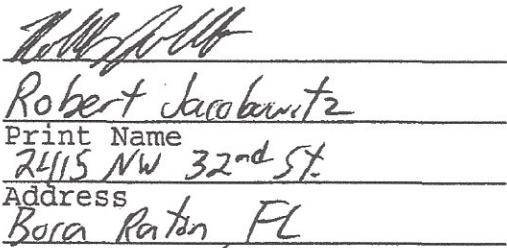 Robert Jacobowitz
Print Name
2415 NW 32nd St.
Address
Boca Raton FL